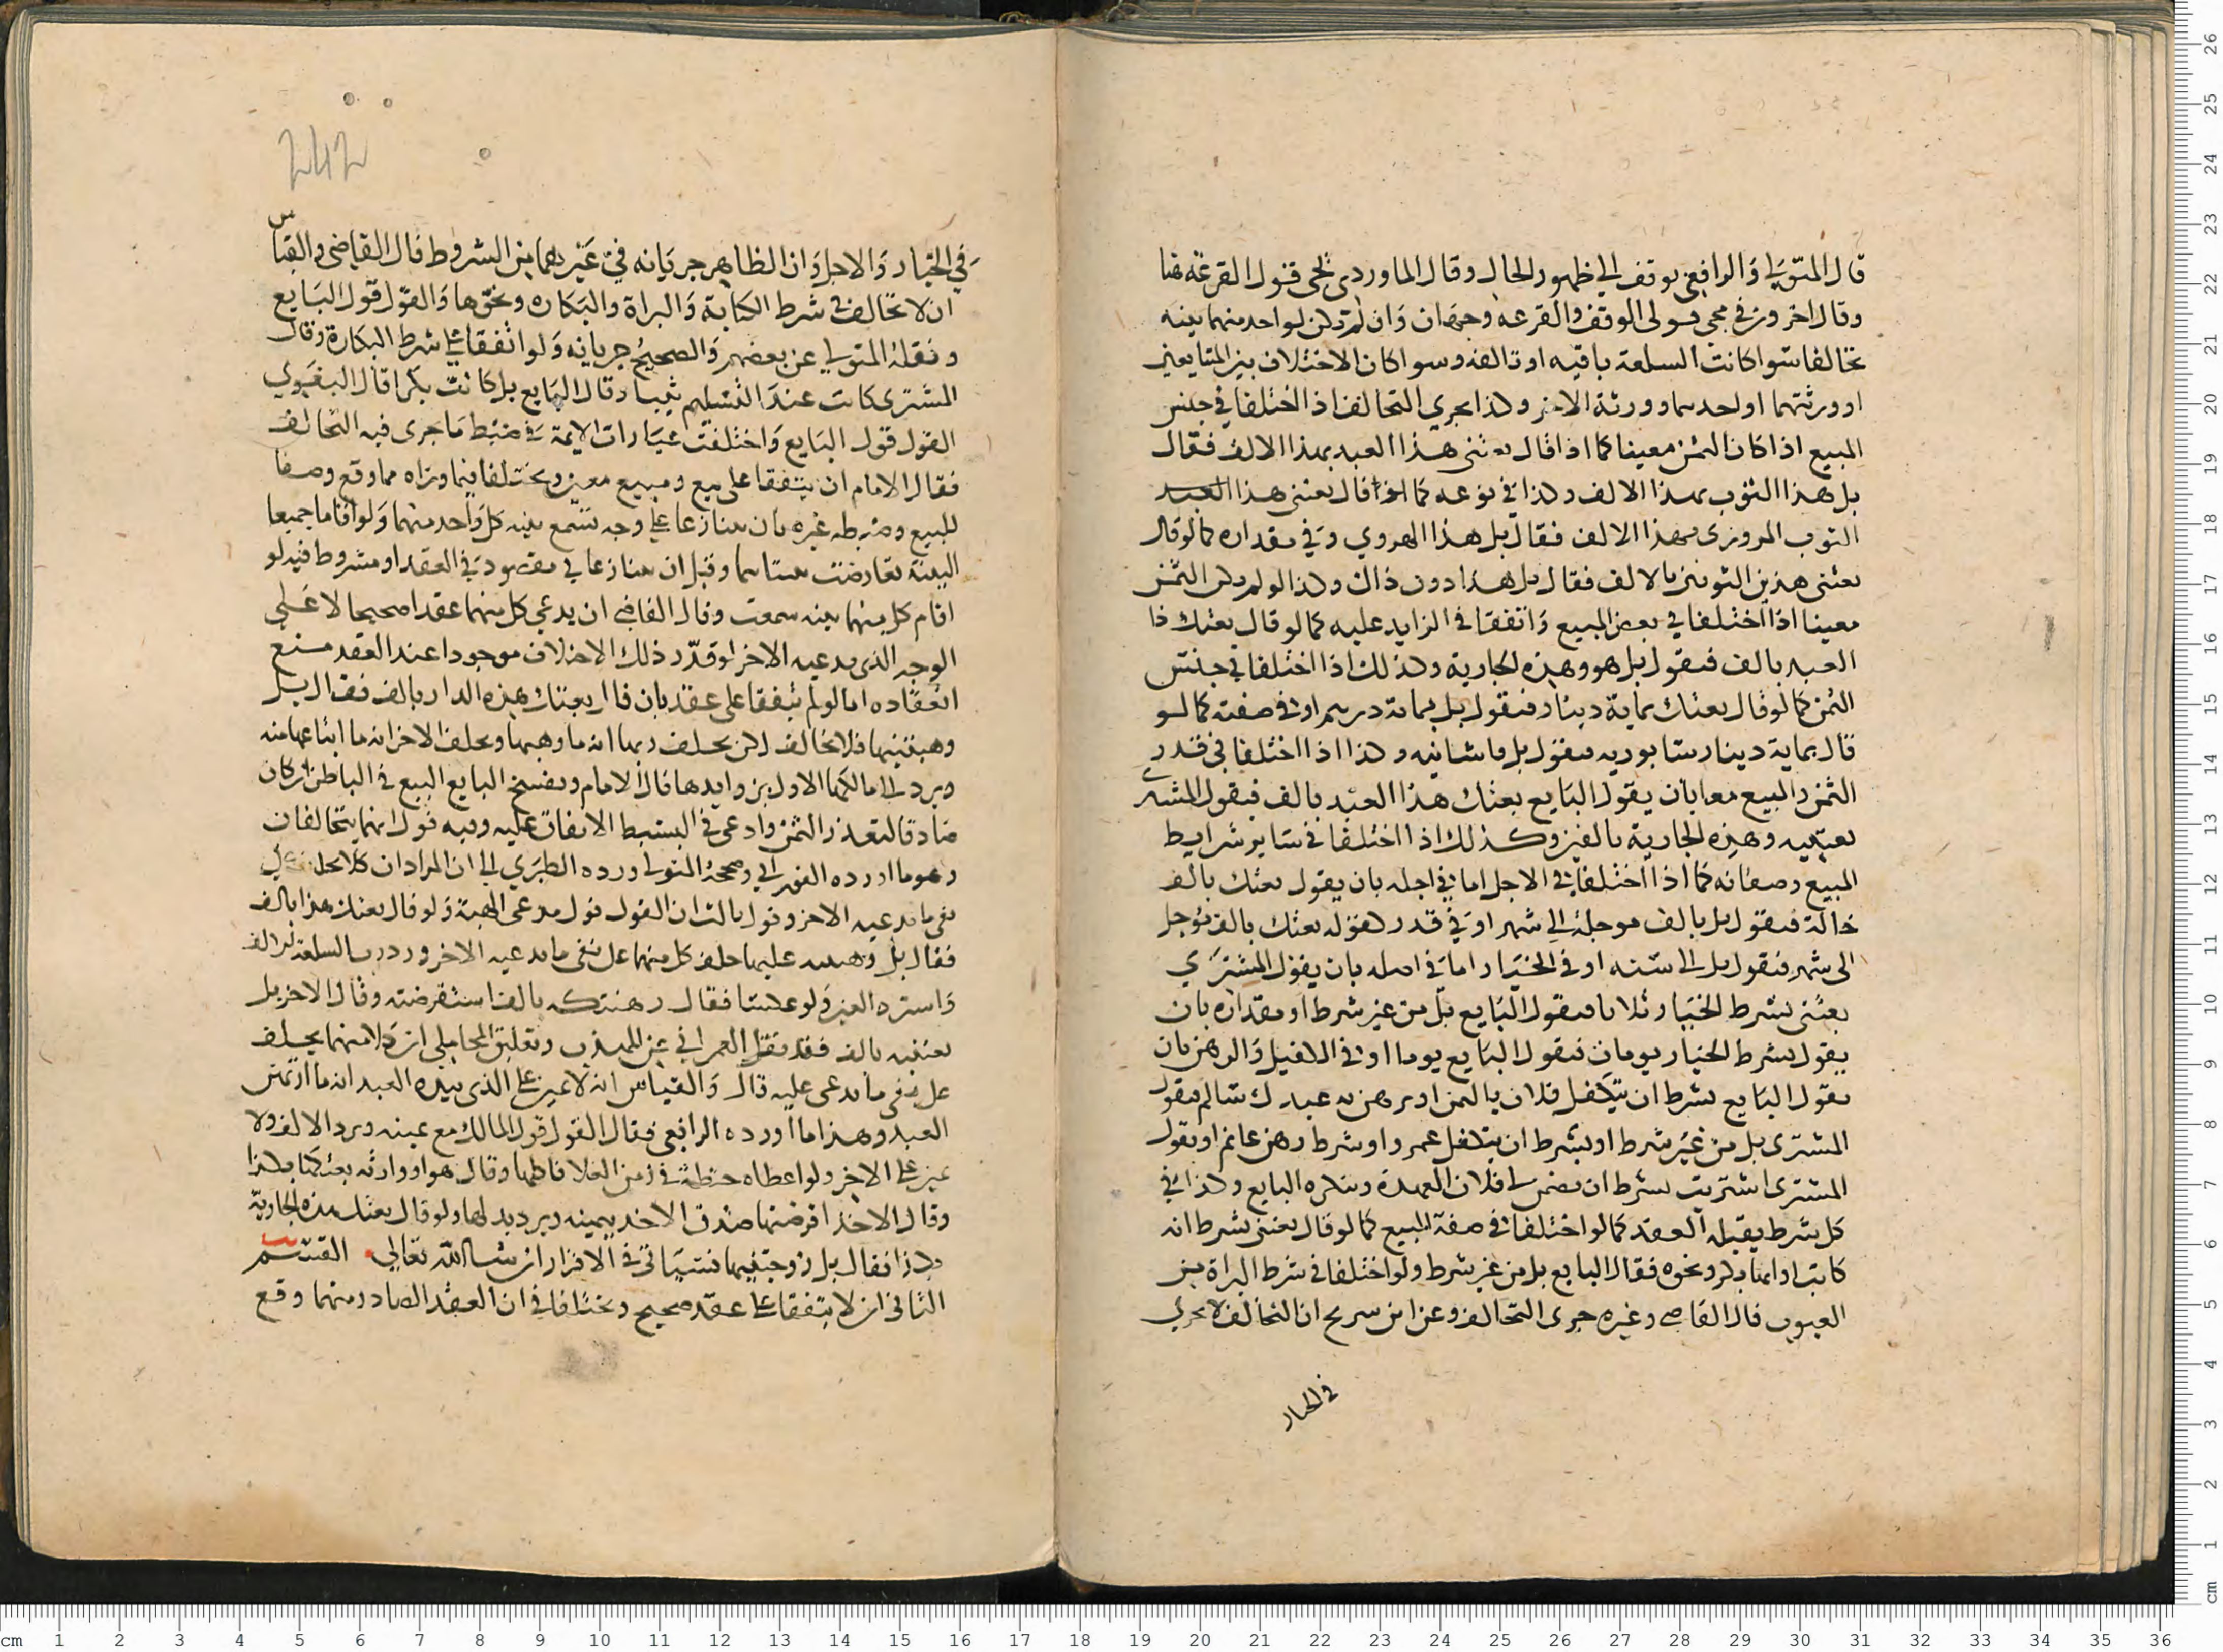 قال المتولي والرافعي يوقف الي ظهور الحال وقال الماوردي يجى قول القرعة هنا
وقال اخرون في مجي قولى الوقف والقرعه وجهان وان لم تكن لواحد منهما بينه
تحالفا سوا كانت السلعة باقيه او تالفه وسوا كان الاختلاف بين المتبايعين
او ورثتهما او احدهما وورثة الاخر وكذا يجري التحالف اذا اختلفا في جنس
المبيع اذا كان الثمن معينا كما اذا قال بعتنى هذا العبد بهذا الالف فقال
بل هذا الثوب بهذا الالف وكذا في نوعه كما اذا قال بعتنى هذا العبد
الثوب المروزى بهذا الالف فقال بل هذا الهروي وفي مقداره كما لو قال
بعتنى هذين الثوبين بالالف فقال بل هذا دون ذاك وكذا لو لم يكن الثمن
معينا اذا اختلفا في بعض المبيع واتفقا في الزايد عليه كما لو قال بعتك ذا
العبد بالف فيقول بل هو وهذه الجارية وكذلك اذا اختلفا في جنس
الثمن كما لو قال بعتك بماية دينار فيقول بل بماية درهم او في صفته كما لو
قال بماية دينار سابوريه فيقول بل قاشانيه وكذا اذا اختلفا في قدر
الثمن والمبيع معا بان يقول البايع بعتك هذا العبد بالف فيقول المشترى
بعتنيه وهذه الجارية بالفين وكذلك اذا اختلفا في ساير شرايط
المبيع وصفاته كما اذا اختلفا في الاجل اما في اجله بان يقول بعتك بالف
حالة فيقول بل بالف موجلة الي شهر او في قدر كقوله بعتك بالف موجل
الى شهر فيقول بل الى سنه او في الخيار اما في اصله بان يقول المشتري
بعتنى بشرط الخيار ثلاثا فيقول البايع بل من غير شرط او مقداره بان
يقول بشرط الخيار يومان فيقول البايع يوما او في الكفيل والرهن بان
يقول البايع بشرط ان يتكفل فلان بالثمن او يرهن به عبدك سالم فيقول
المشترى بل من غير شرط او بشرط ان يتكفل عمرو او شرط رهن غانم او يقول
المشترى اشتريت بشرط ان يضمن لي فلان العهدة وينكره البايع وكذا في
كل شرط يقبله العقد كما لو اختلفا في صفة المبيع كما لو قال بعتنى بشرط انه
كاتب او انها بكر ونحوه فقال البايع بل من غير شرط ولو اختلفا في شرط البراة من
العيوب قال القاضي وغيره جرى التحالف وعن ابن سريج ان التحالف لا يجري
في الخيار
في الخيار والاجل وان الظاهر جريانه في غيرهما من الشروط قال القاضي والقياس
ان لا تحالف في شرط الكتابة والبراة والبكاره ونحوها والقول قول البايع
ونقله المتولي عن بعضهم والصحيح جريانه ولو اتفقا على شرط البكارة وقال
المشترى كانت عند التسليم ثيبا وقال البايع بل كانت بكرا قال البغوي
القول قول البايع واختلفت عبارات الايمة في ضبط ما جرى فيه التحالف
فقال الامام ان يتفقا على بيع ومبيع معين ويختلفا فيما وراه مما وقع وصفا
للبيع وضبطه غيره بان يتنازعا على وجه تسمع بينه كل واحد منهما ولو اقاماها جميعا
البينة تعارضت بينتاهما وقيل ان يتنازعا في مقصود في العقد او مشروط فيه لو
اقام كل منهما بينه سمعت وقال القاضي ان يدعي كل منهما عقدا صحيحا لا على
الوجه الذى يدعيه الاخر لو قدر ذلك الاختلاف موجودا عند العقد منع
انعقاده اما لو لم يتفقا على عقد بان قال بعتك هذه الدار بالف فقال بل
وهبتنيها فلا تحالف لكن يحلف ربها انه ما وهبها ويحلف الاخر انه ما ابتاعها منه
ويرد الي مالكها الاول بزوايدها قال الامام ويفسخ البايع البيع في الباطن ان كان
صادقا لتعذر الثمن وادعى في البسيط الاتفاق عليه وفيه قول انهما يتحالفان
وهو ما اورده الفوراني وصححه المتولي ورده الطبري الي ان المراد ان كلا يحلف على
نفي ما يدعيه الاخر وقول ثالث ان القول قول مدعى الهبة ولو قال بعتك هذا بالف
فقال بل وهبتنيه عليهما حلف كل منهما على نفى ما يدعيه الاخر ورد رب السلعة الالف
واسترد العين ولو عكسا فقال رهنتكه بالف استقرضته وقال الاخر بل
بعتنيه بالف فقد نقل العمراني عن المهذب وتعليق المحاملي ان كلا منهما يحلف
على نفى ما يدعى عليه قال والقياس انه لا يمين على الذى بيده العبد انه ما ارتهن
العبد وهذا ما اورده الرافعي فقال القول قول المالك مع يمينه ويرد الالف ولا
يمين على الاخر ولو اعطاه حنطة في زمن الغلا فاكلها وقال هو او وارثه بعتكها بكذا
وقال الاخذ اقرضتنيها صدق الاخذ بيمينه ويرد بدلها ولو قال بعتك هذه الجارية
بكذا فقال بل زوجتنيها فسياتى في الاقرار ان شا الله تعالي القسم
الثاني ان لا يتفقا على عقد صحيح ويختلفا في ان العقد الصادر منهما وقع